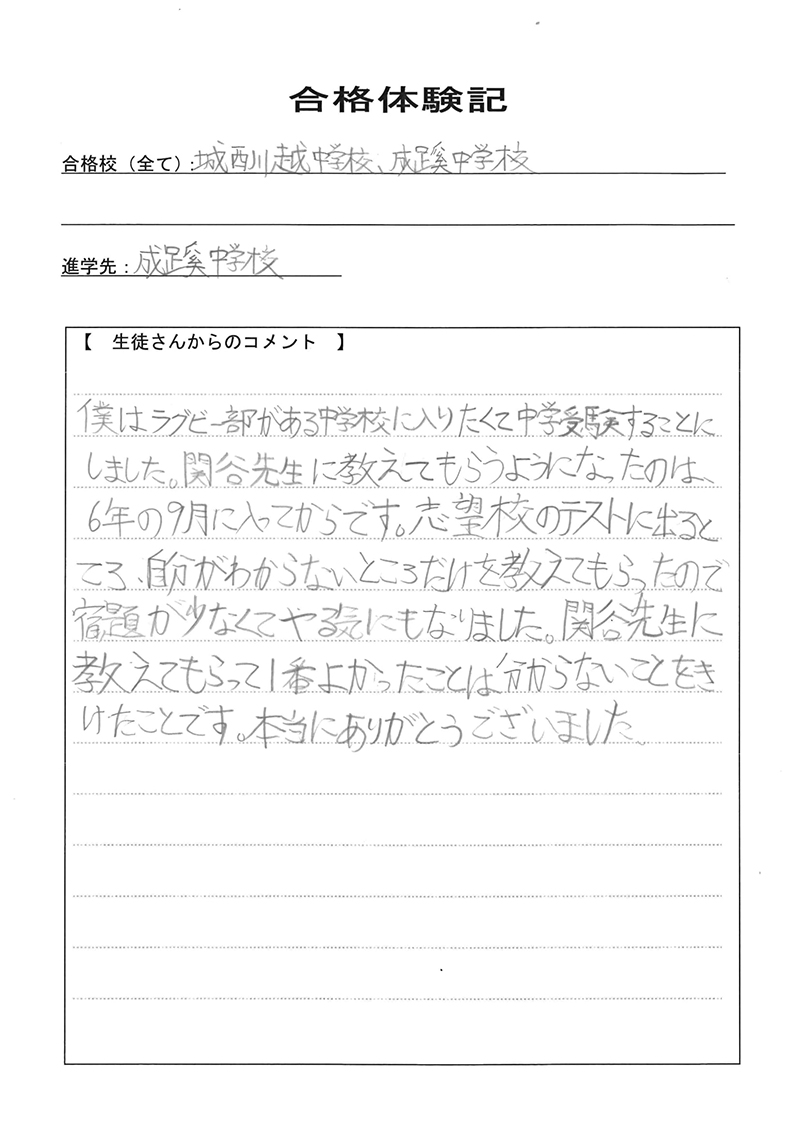 合格体験記
合格校（全て）：城西川越中学校、成蹊中学校
進学先：成蹊中学校
【　生徒さんからのコメント　】
僕はラグビー部がある中学校に入りたくて中学受験することに
しました。関谷先生に教えてもらうようになったのは、
6年の9月に入ってからです。志望校のテストに出ると
ころ、自分がわからないところだけを教えてもらったので
宿題が少なくてやる気にもなりました。関谷先生に
教えてもらって1番よかったことは分からないことをき
けたことです。本当にありがとうございました。